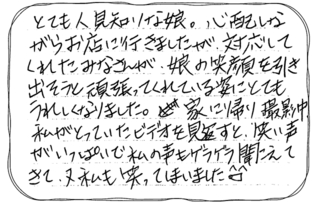 とても人見知りな娘。心配しな
がらお店に行きましたが、対応して
くれたみなさんが、娘の笑顔を引き
出そうと頑張ってくれている姿にとても
うれしくなりました。家に帰り撮影中、
私がとっていたビデオを見返すと、笑い声
がいっぱいで私の声もゲラゲラ聞こえて
きて、又私も笑ってしまいました